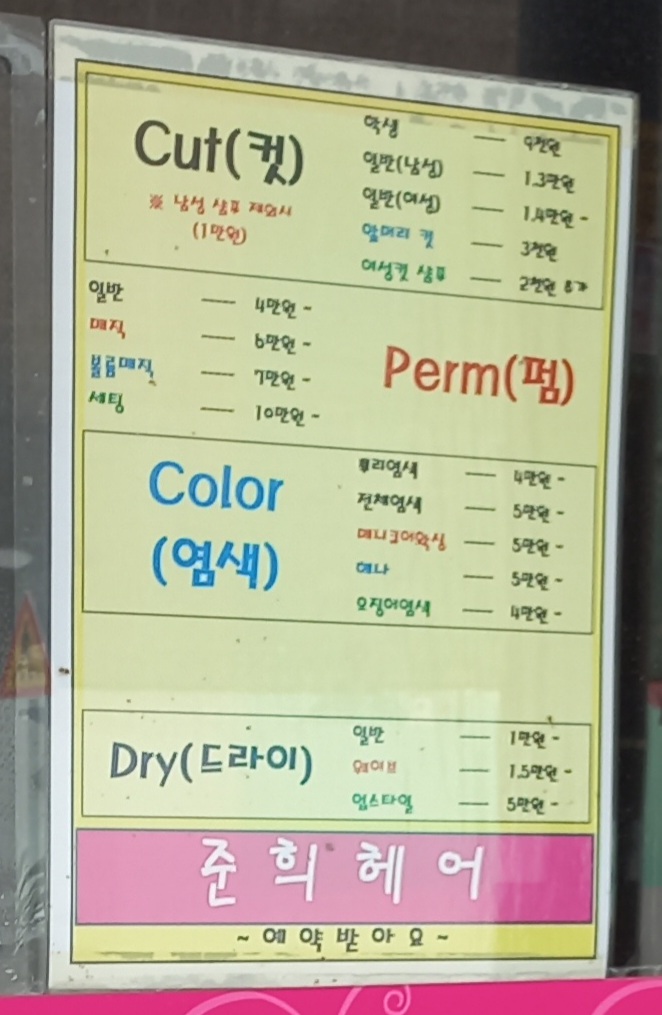 Cut(컷)
※ 남성 샴푸 제외시
(1만원)
학생 — 9천원
일반(남성) — 1.3만원
일반(여성) — 1.4만원 ~
앞머리 컷 — 3천원
여성컷 샴푸 — 2천원 추가
일반 — 4만원 ~
매직 — 6만원 ~
볼륨매직 — 7만원 ~
세팅 — 10만원 ~
Perm(펌)
Color
(염색)
뿌리염색 — 4만원 ~
전체염색 — 5만원 ~
매니큐어왁싱 — 5만원 ~
헤나 — 5만원 ~
오징어염색 — 4만원 ~
Dry(드라이)
일반 — 1만원 ~
웨이브 — 1.5만원 ~
업스타일 — 5만원 ~
준희헤어
~ 예약받아요 ~